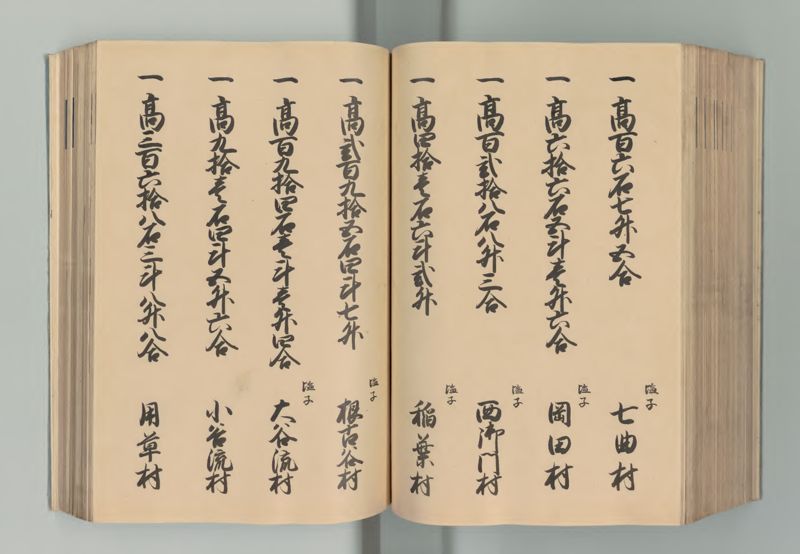 一高百六石七升五合 塩子 七曲村
一高六拾六石五斗壱升六合 塩子 岡田村
一高百弐拾八石八升三合 塩子 西御門村
一高四拾壱石六斗弐升 塩子 稲葉村
一高弐百九拾五石四斗七升 塩子 根古谷村
一高百九拾四石壱斗壱升四合 塩子 大谷流村
一高九拾壱石四斗五升六合 小谷流村
一高三百六拾八石三斗八升八合 用草村